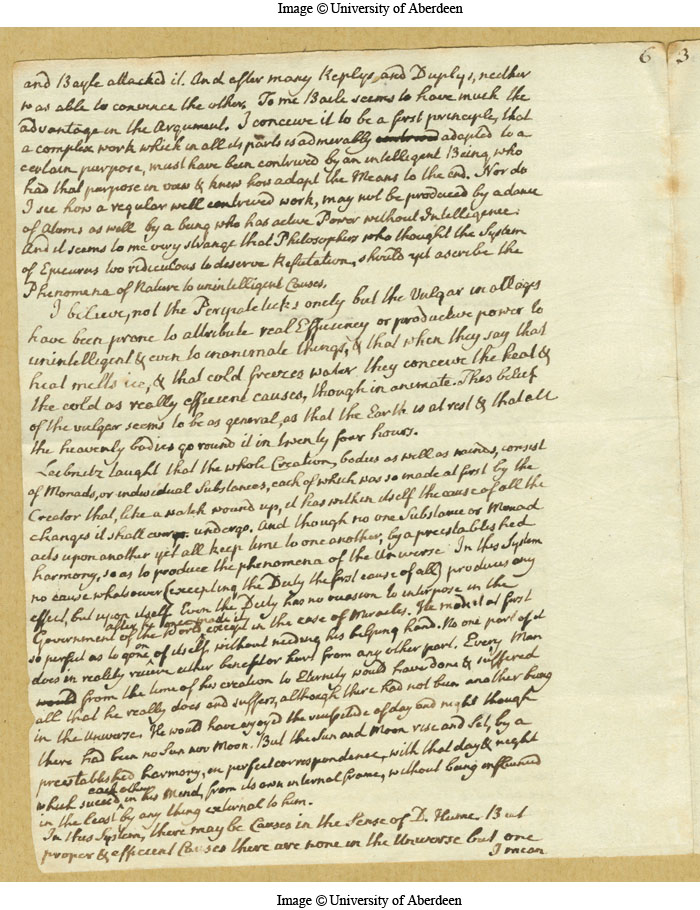 Image © University of Aberdeen
6 3
and Bayle attacked it. And after many Replys and Duplys, neither
was able to convince the other. To me Baile seems to have much the
advantage in the Argument. I conceive it to be a first principle, that
a complex work which in all its parts is admerably contrived adapted to a
certain purpose, must have been contrived by an intelligent Being, who
had that purpose in view & knew how adapt the Means to the end. Nor do
I see how a regular well contrived work, may not be produced by a dance
of Atoms as well by a being who has active Power without Intelligence.
And it seems to me very strange that Philosophers who thought the System
of Epicurus too ridiculous to deserve Refutation, should yet ascribe the
Phenomena of Nature to unintelligent Causes.
I believe, not the Peripateticks onely but the Vulgar in all ages
have been prone to attribute real Efficiency or productive power to
unintelligent & even to inanimate things, & that when they say that
heat melts ice, & that cold freezes water they conceive the heat &
the cold as really efficient causes, though inanimate. This belief
of the vulgar seems to be as general, as that the Earth is at rest & that all
the heavenly bodies go round it in twenty four hours.
Leibnitz taught that the whole Creation, bodies as well as minds, consist
of Monads, or individual Substances, each of which was so made at first by the
Creator that, like a watch wound up, it has within itself the cause of all the
changes it shall undergo. And though no one Substance or Monad
acts upon another yet all keep time to one another, by a preestablished
harmony, so as to produce the phenomena of the Universe. In this System
no cause whatsoever (excepting the Deity the first cause of all) produces any
effect, but upon itself. Even the Deity has no occasion to interpose in the
after he once made it
Government of the World except in the case of Miracles. He made it at first
so perfect as to go on of itself, without needing his helping hand. No one part of it
does in reality receive either benefit or hurt from any other part. Every Man
would from the time of his creation to Eternity would have done & suffered
all that he really does and suffers, although there had not been another being
in the Universe. He would have enjoyed the vicissitude of day and night though
there had been no Sun nor Moon. But the Sun and Moon rise and Set, by a
preestablished harmony, in perfect correspondence, with that day & night
each other
which succeed in his Mind, from its own internal frame, without being influenced
in the least by any thing external to him.
In this System, there may be Causes in the Sense of D. Hume. But
proper & efficient Causes there are none in the Universe but one
I mean
Image © University of Aberdeen